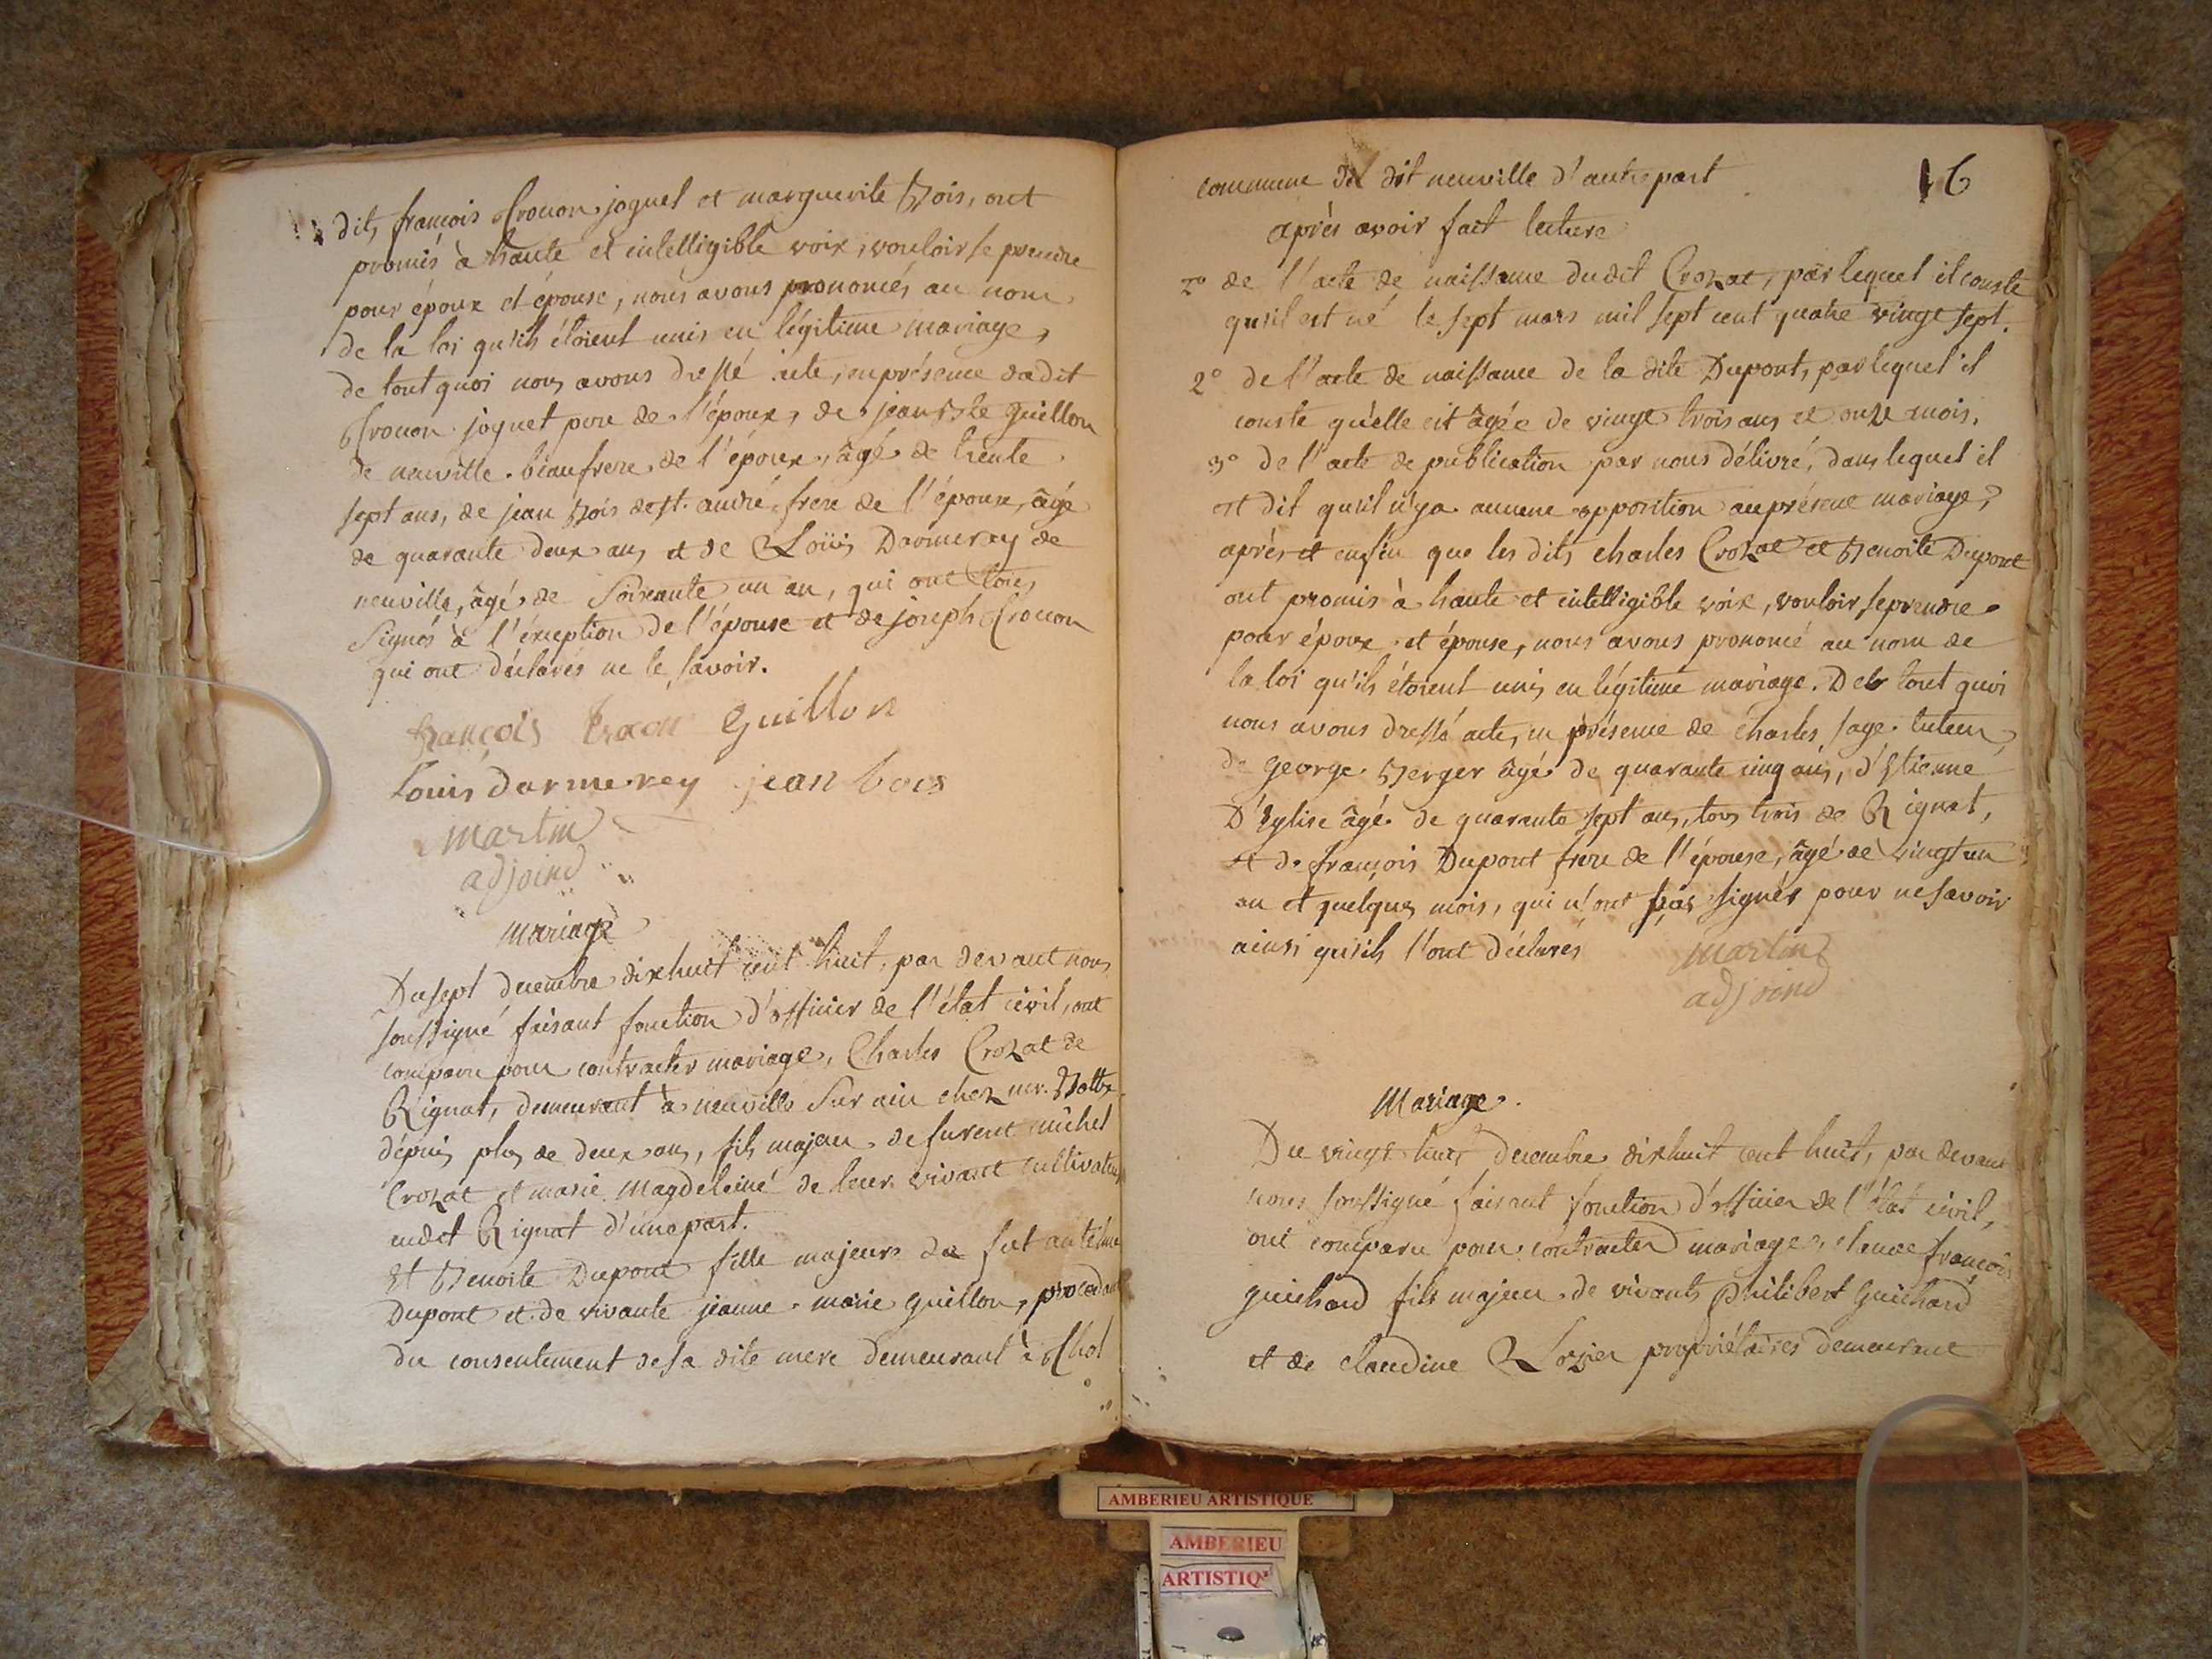 dits françois Crouon joguet et marguerite Bois, ont
promis à haute et intelligible voix, vouloir se prendre
pour époux et épouse, nous avons prononcés au nom
de la loi qu'ils étoient unis en légitime mariage,
de tout quoi nous avons dressé acte, en présence dudit
Crouon joguet pere de l'époux, de jean Bte Guillon
de neuville beaufrere de l'époux, âgé de trente
sept ans, de jean Bois de st. andré frere de l'épouse, âgé
de quarante deux ans et de Louis Darmeray de
neuville, âgé de soixante un an, qui ont tous
signés à l'exception de l'épouse et de joseph Crouon
qui ont déclarés ne le savoir.
françois Guillon
Louis darmerey jean bois
martin
adjoind
mariage
Du sept decembre dixhuit cent huit, par devant nous
soussigné faisant fonction d'officier de l'état civil, ont
comparu pour contracter mariage, Charles Crozat de
Rignat, demeurant à neuville sur ain chez mr.
dépuis plus de deux ans, fils majeur de furent michel
Crozat et marie Magdeleine de leur vivant cultivateurs
audit Rignat d'une part.
Et Benoite Dupont fille majeure de fut antelme
Dupont et de vivante jeanne marie Guillon, procedant
du consentement de sa dite mere demeurant à
commune du dit neuville d'autre part
16
après avoir fait lecture
1º de l'acte de naissance dudit Crozat, par lequel il conste
qu'il est né le sept mars mil sept cent quatre vingt sept.
2º de l'acte de naissance de la dite Dupont, par lequel il
conste qu'elle est âgée de vingt trois ans et onze mois.
3º de l'acte de publication par nous délivré, dans lequel il
est dit qu'il n'ya aucune opposition au présent mariage,
après et enfin que les dits charles Crozat et Benoite Dupont
ont promis à haute et intelligible voix, vouloir se prendre
pour époux et épouse, nous avons prononcé au nom de
la loi qu'ils étoient unis en légitime mariage. De tout quoi
nous avons dressé acte, en présence de charles sage tuteur,
de george Berger âgé de quarante cinq ans, d'Etienne
D'Eglise âgé de quarante sept ans, tous trois de Rignat,
et de françois Dupont frere de l'épouse, âgé de vingt un
an et quelques mois, qui n'ont pas signés pour ne savoir
ainsi qu'ils l'ont déclarés
martin
adjoind
Mariage.
Du vingt huit decembre dixhuit cent huit, par devant
nous soussigné faisant fonction d'officier de l'état civil,
ont comparu pour contracter mariage, claude françois
guichard fils majeur de vivants Philibert Guichard
et de claudine propriétaires demeurant
AMBERIEU ARTISTIQUE
AMBERIEU
ARTISTIQ